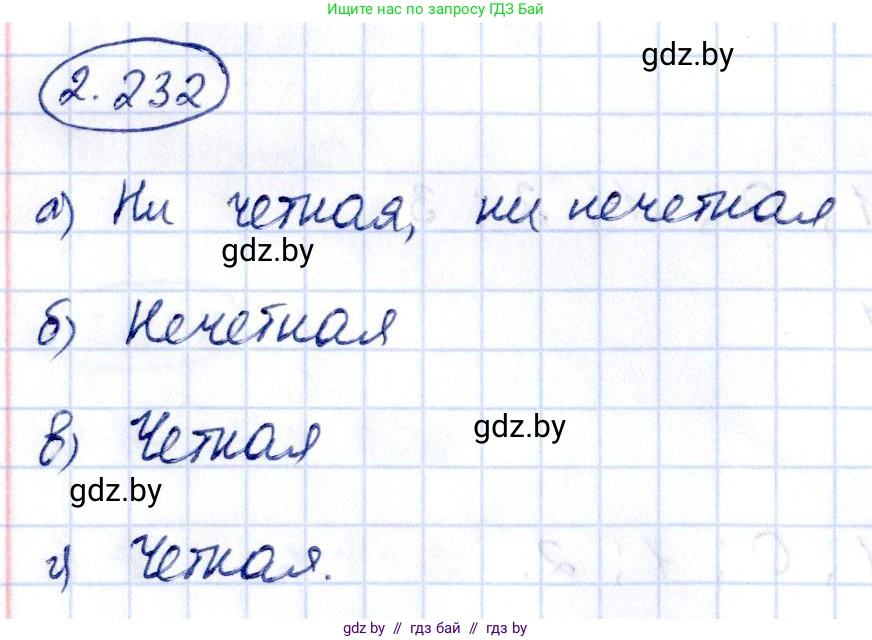 Ищите нас по запросу ГДЗ Бай
gdz.by
2.232
а) Ни четная, ни нечетная
gdz.by
б) Нечетная
в) Четная
gdz.by
gdz.by
г) Четная.
gdz.by // гдз бай // gdz by